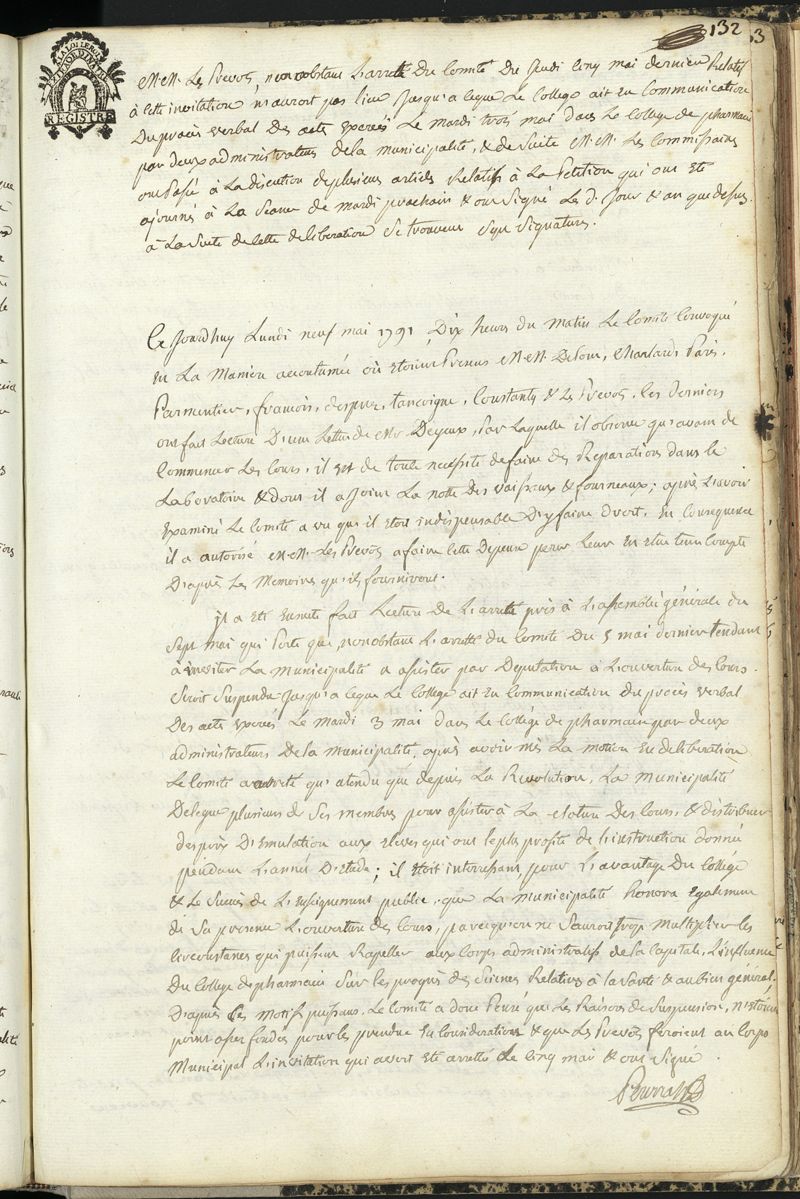 132
53
LA LOI LE ROI
EXTRAORDINAIRE
REGISTRE
M.M. Les Prevots, nonobstant L'arrette Du Comité Du Jeudi Cinq mai dernier Relatif
à cette invitation n'auroit pas lieu Jusqu'a ceque Le College ait eu Communication
Du procès verbal Des actes Exercés Le mardi trois mai dans Le College de pharmacie
par deux administrateurs dela municipalité, & de suite M.M. Les Commissaires
ont Passé à La discution deplusieurs articles Relatifs à La Petition qui ont Eté
ajournés à La Seance de mardi prochain & ont Signé Les d. Jour & an que dessus.
à La Suite de cette deliberation Se trouvent Sept Signatures.
Ce Jourdhuy Lundi neuf mai 1791, Dix heures du matin Le Comité Convoqué
En La Maniere accoutumée où Etoient Presens M.M. Delon, Chartard, Paris,
Parmentier, francois, desprez, tancoigne, Constant & Les Prevots, les derniers
ont fait Lecture D'une Lettre de Mr. Deyeux, Par Laquelle il observe qu'avant de
Commencer Les Cours, il est de toute necessité defaire des Reparations dans le
Laboratoire & dont il a Joint La note Des vaisseaux & fourneaux; après L'avoir
Examiné Le Comité a vu qu'il Etoit indispensable D'yfaire droit. En Consequence
il a autorisé M.M. Les Prevots afaire cette Depense pour Leur En Etre tenu Compte
D'après Les Memoires qu'ils fourniront.
il a Eté Ensuite fait Lecture de L'arretté pris à L'assemblée générale du
Sept mai qui Porte que, nonobstant L'arretté du Comité Du 5 mai dernier tendant
à inviter La Municipalité a assister par Deputation à L'ouverture des Cours.
Seroit Suspendu Jusqu'a ceque Le College ait Eu Communication du procès verbal
Des actes Exercés Le mardi 3 mai dans Le College de pharmacie par deux
administrateurs De la municipalité, après avoir mis La motion En deliberation
Le Comité a arretté qu'atendu que depuis La Revolution, La municipalité
Delegue plusieurs de Ses membres pour assister à La cloture Des Cours, & distribuer
des prix D'Emulation aux Eleves qui ont leplus profité de L'instruction donnée
pendant L'année D'Etude; il Etoit interressant, pour L'avantage Du College
& Le Succès de L'Enseignement public, que La Municipalité honora Egalement
de Sa presence L'ouverture des Cours, parcequ'on ne Sauroit trop Multiplier les
Circonstances qui puissent Rapeller aux Corps administratifs dela Capitale, L'influence
Du College de pharmacie Sur les progrès des Sciences Relatives à la Santé & aubien général.
D'après Ces Motifs puissans, Le Comité a donc Pensé que Les Raisons de Suspension, n'étoient
point assez fondées pour les prendre En Considerations & que Les Prevots feroient au Corps
Municipal L'invitation qui avoit Eté arretté Le Cinq mai & ont Signé.